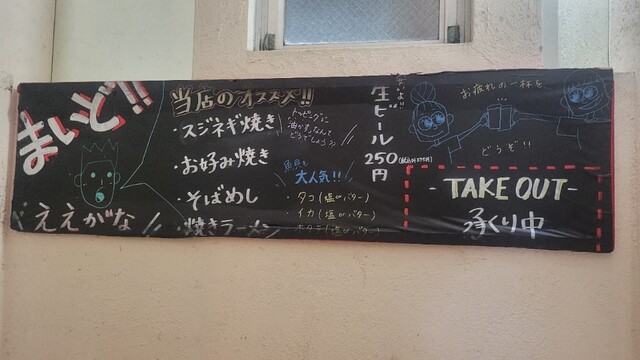 まいど!!
ええがな
当店のオススメ!!
・スジネギ焼き
・お好み焼き
・そばめし
・焼きラーメン
トッピングに
大人気!!
・タコ(塩orバター)
・イカ(塩orバター)
ホタテ(塩orバター)
生ビール
250円
お疲れの一杯を
どうぞ!!
-TAKE OUT-
承り中